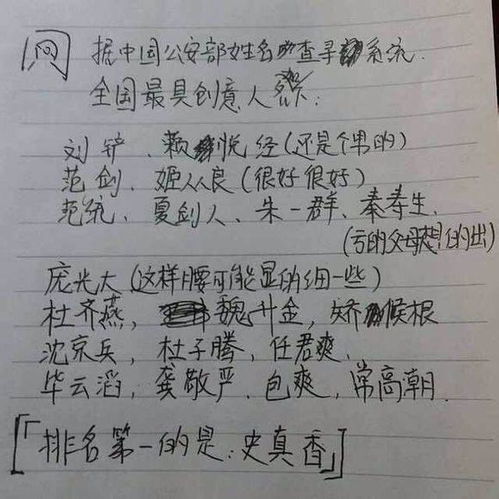 问 据中国公安部姓名查寻系统.
全国最具创意人名:
刘铲、赖悦经(还是个男的)
范剑、姬从良(很好很好)
范统、夏剑人、朱一群、秦寿生.
(亏的父母想的出)
庞光大(这样腰可能显的细一些)
杜齐燕, 魏升金, 矫候根
沈京兵, 杜子腾, 任君爽.
毕云涛, 龚敬严, 包爽, 常高朝.
[「排名第一的是:史真香」]